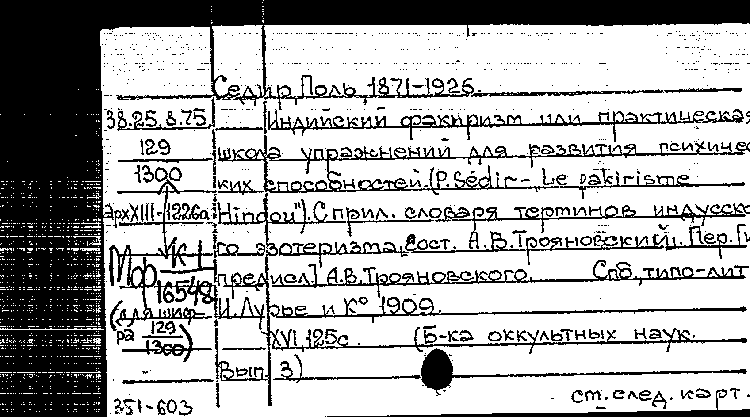 Седир, Поль, 1871-1926.
38.25.8.75. Индийский факиризм или практическая
129 школа упражнений для развития психичес
1300 ких способностей. (P. Sédir - "Le fakirisme
Арх XIII-1226а Hindou"). С прил. словаря терминов индусско
го эзотеризма, сост. А.В.Трояновский. Пер. [и
Мф К-1 предисл] А.В.Трояновского. Спб, типо-лит
16548 И.Лурье и К°, 1909.
(для шиф
ра 129 XVI, 125с. (Б-ка оккультных наук.
1300) Вып. 3)
см. след. карт.
351-603